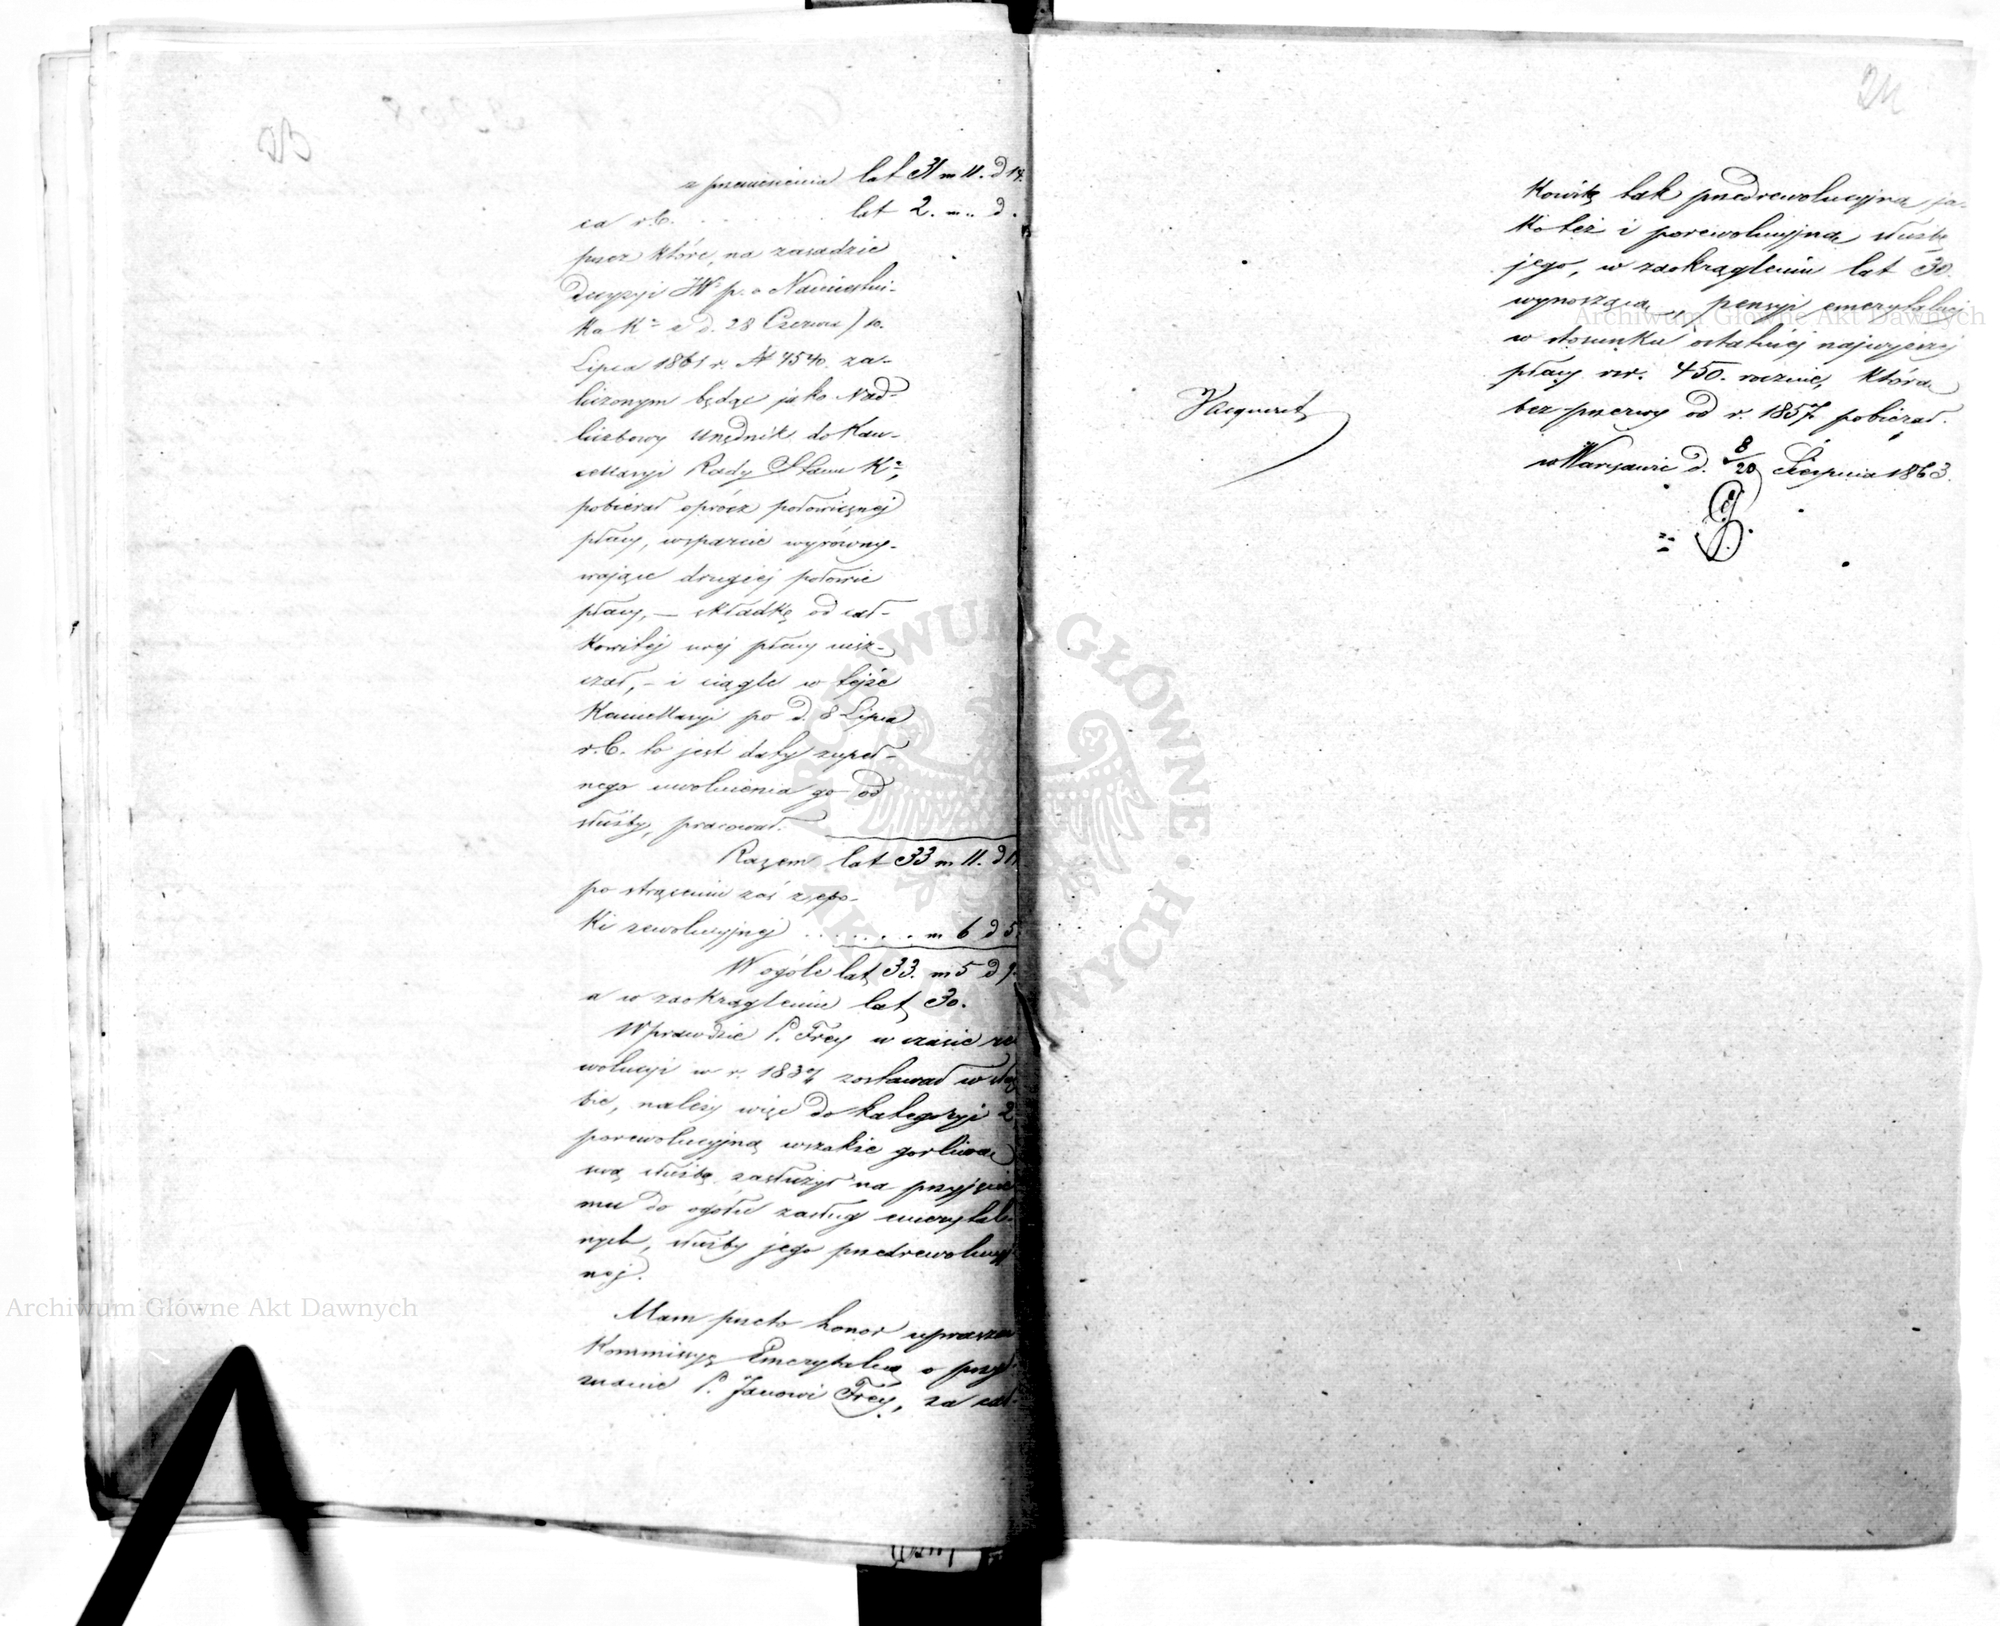 z przeniesienia lat 31 m 11. d 14.
ca r.b. . . . . . . lat 2. m.. d.
przez które, na zasadzie
decyzyi JW p. o Namiestni-
ka Kr. z d. 28 Czerwca / 10.
Lipca 1861 r. № 4540. za-
liczonym będąc jako Nad-
liczbowy Urzędnik do Kan-
cellaryi Rady Stanu Kr.,
pobierał oprócz połowicznej
płacy, wsparcie wyrówny-
wające drugiej połowie
płacy, — składkę od cał-
kowitej swej płacy uisz-
czał, — i ciągle w tejże
Kancellaryi po d. 8 Lipca
r.b. to jest daty zupeł-
nego uwolnienia go od
służby, pracował.
Razem lat 33 m 11. d
po strąceniu zaś z epo-
ki rewolucyjnej . . . . . . m 6 d 5.
W ogóle lat 33. m 5 d 9.
a w zaokrągleniu lat 30.
Wprawdzie P. Frey w czasie re
wolucyi w r. 1830/1 zostawał w służ
bie, należy więc do kategoryi 2
porewolucyjną wszakże gorliwą
swą służbą zasłużył na przyjęcie
mu do ogółu zasług emerytal-
nych, służby jego przedrewolucyj
nej.
Mam przeto honor upraszać
Kommissyę Emerytalną o przy-
znanie P. Janowi Frey, za cał-
24
kowitą tak przedrewolucyjną ja-
ko też i porewolucyjną służbę
jego, w zaokrągleniu lat 30.
wynoszącą, pensyi emerytalnej
w stosunku ostatniej najwyższej
płacy rsr. 450. rocznie, którą
bez przerwy od r. 1857 pobierał.
w Warszawie d. 8/20 Sierpnia 1863.
Archiwum Główne Akt Dawnych
Archiwum Główne Akt Dawnych
ARCHIWUM GŁÓWNE AKT DAWNYCH